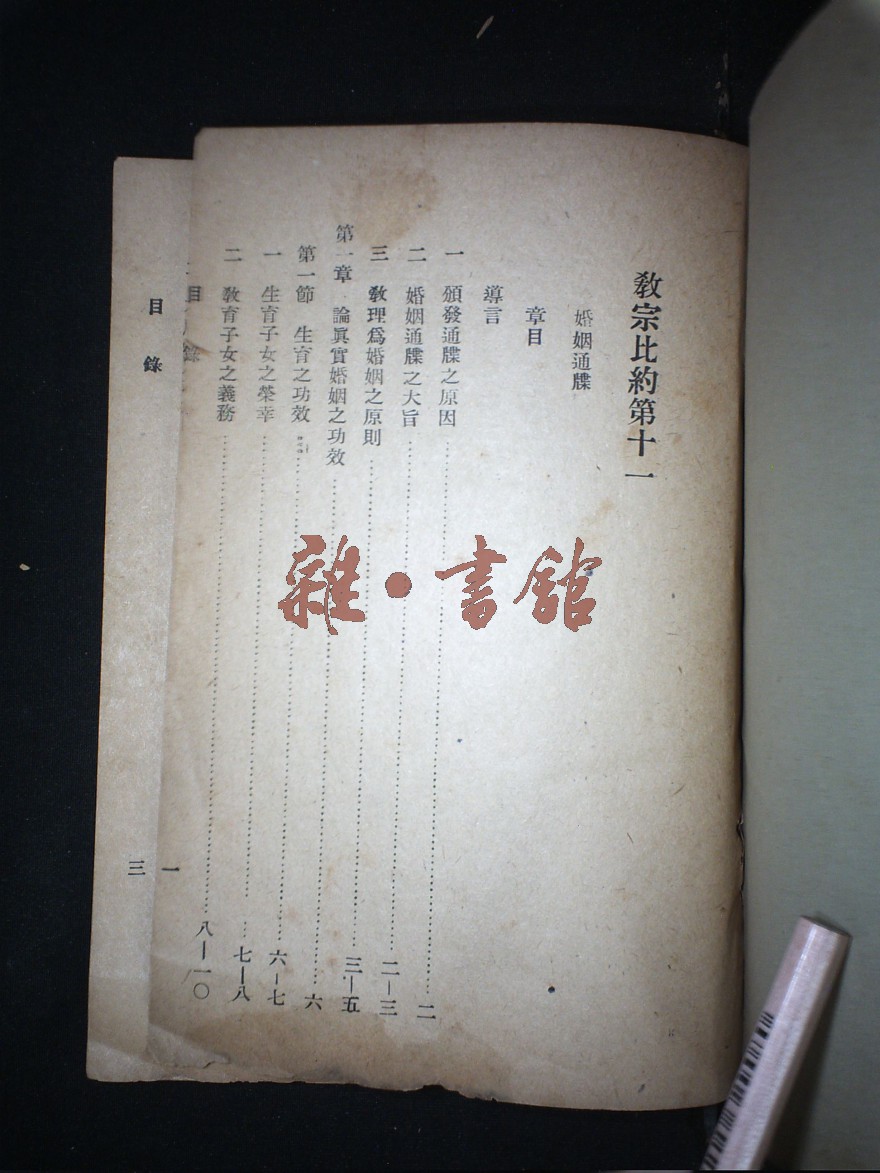 教宗比約第十一
婚姻通牒
章目
導言
一 頒發通牒之原因……二
二 婚姻通牒之大旨……二—三
三 教理爲婚姻之原則……三—五
第一章 論眞實婚姻之功效……六
第一節 生育之功效……六—七
一 生育子女之榮幸……七—八
二 教育子女之義務……八—一〇
目錄 一
目錄 三
雜·書館